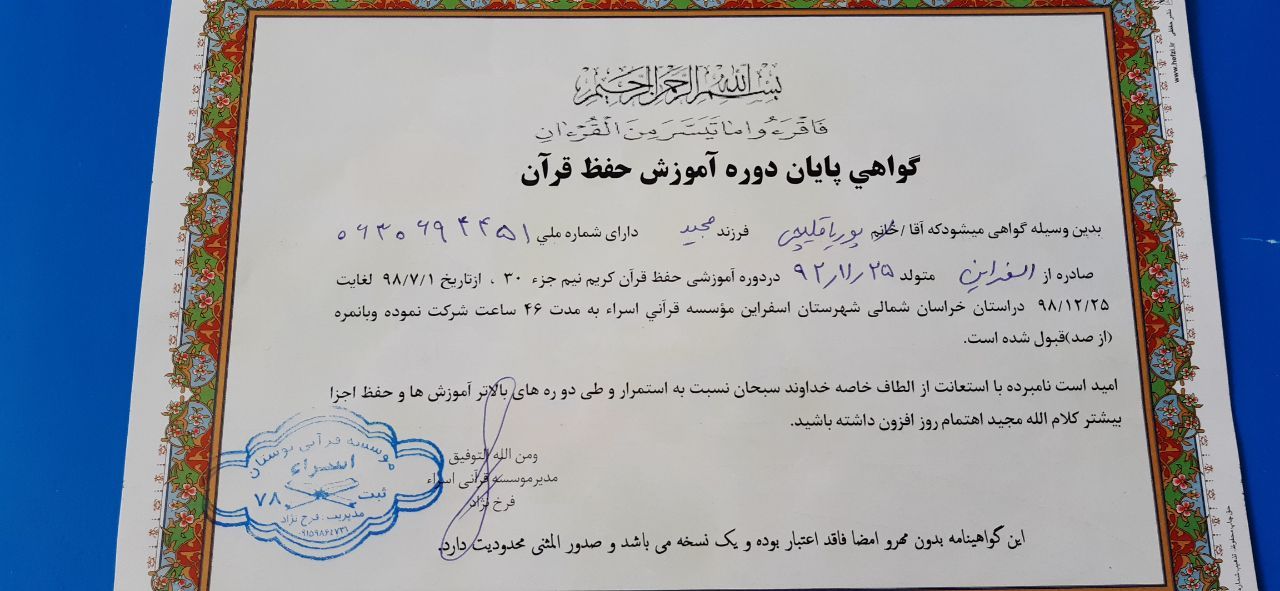 بسم الله الرحمن الرحیم
فَاقْرَءُوا مَا تَيَسَّرَ مِنَ الْقُرْءَانِ
گواهي پایان دوره آموزش حفظ قرآن
بدین وسیله گواهی میشودکه آقا /خانم پوریا قلیچی فرزند مجید دارای شماره ملي ۰۶۳۰۶۹۴۴۵۱
صادره از اسفراین متولد ۹۲/۱/۲۵ دردوره آموزشی حفظ قرآن کریم نیم جزء ۳۰ ، ازتاریخ ۹۸/۷/۱ لغایت
۹۸/۱۲/۲۵ دراستان خراسان شمالی شهرستان اسفراین مؤسسه قرآني اسراء به مدت ۴۶ ساعت شرکت نموده وبانمره
(از صد)قبول شده است.
امید است نامبرده با استعانت از الطاف خاصه خداوند سبحان نسبت به استمرار و طی دو ره های بالاتر آموزش ها و حفظ اجزا
بیشتر کلام الله مجید اهتمام روز افزون داشته باشید.
ومن الله التوفیق
مدیرموسسه قرآنی اسراء
فرخ نژاد
موسسه قرآنی بوستان
اسراء
ثبت ۷۸
مدیریت: فرخ نژاد
۰۹۱۵۹۸۶۴۷۳۱
این گواهینامه بدون مهرو امضا فاقد اعتبار بوده و یک نسخه می باشد و صدور المثنی محدودیت دارد.
www.hefzi.ir